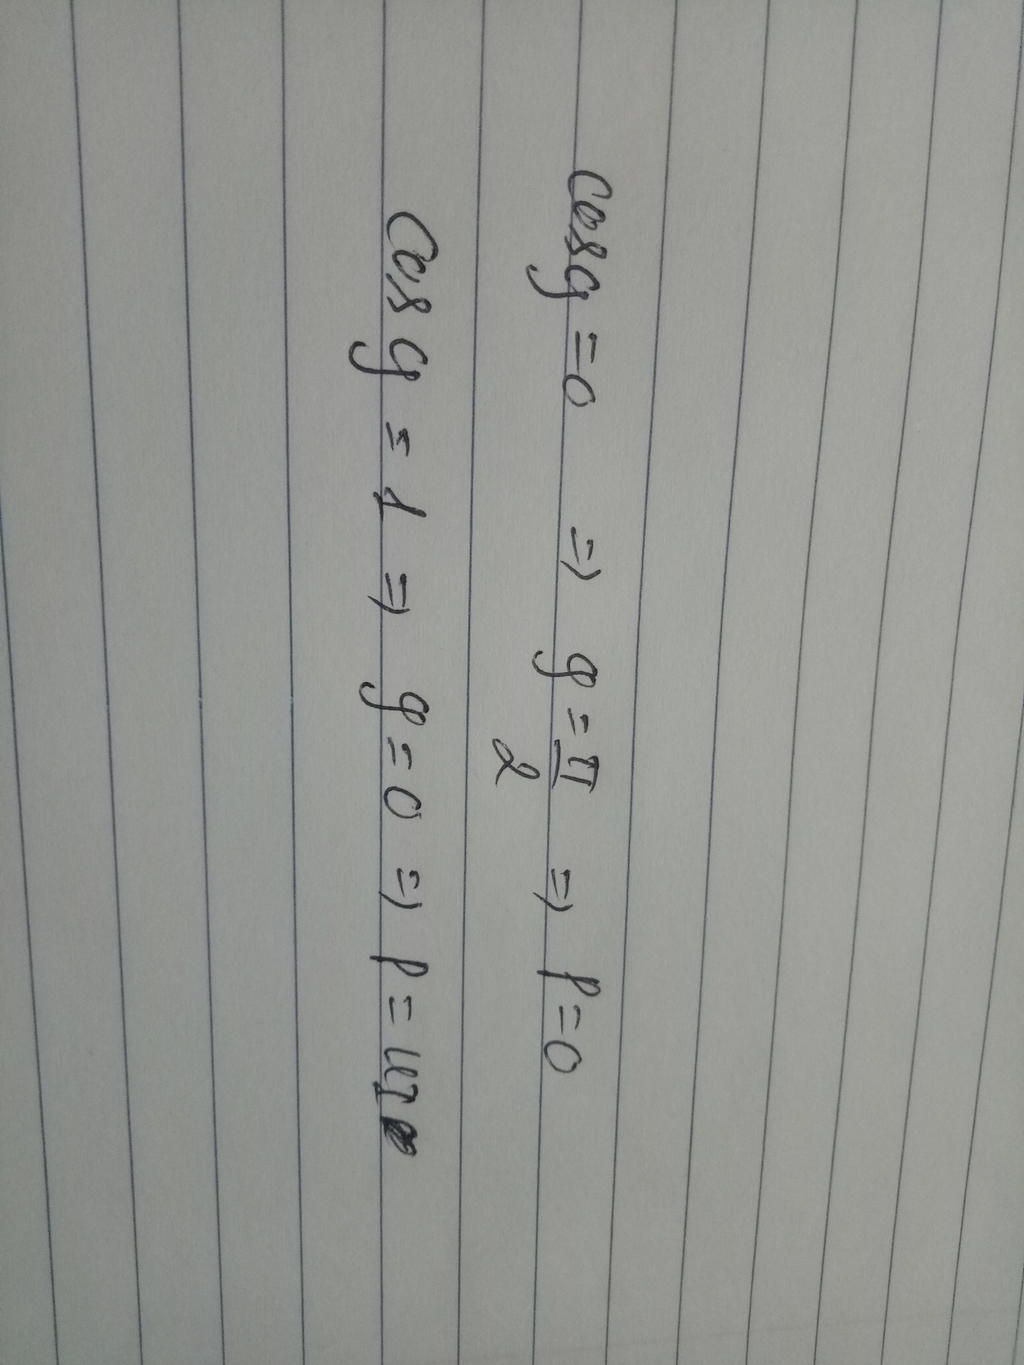 cosφ = 0 => φ = π/2 => P = 0
Cos φ = 1 => φ = 0 => P = UI